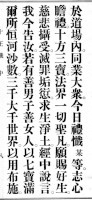 於道場內同業大衆今日禮懺某等志心
瞻禮十方三寶法界一切聖凡願賜好生
慈悲攝受滅罪垢愆求生淨土經中說言
我今告汝若有善男子善女人以七寶滿
爾所恒河沙數三千大千世界以用布施